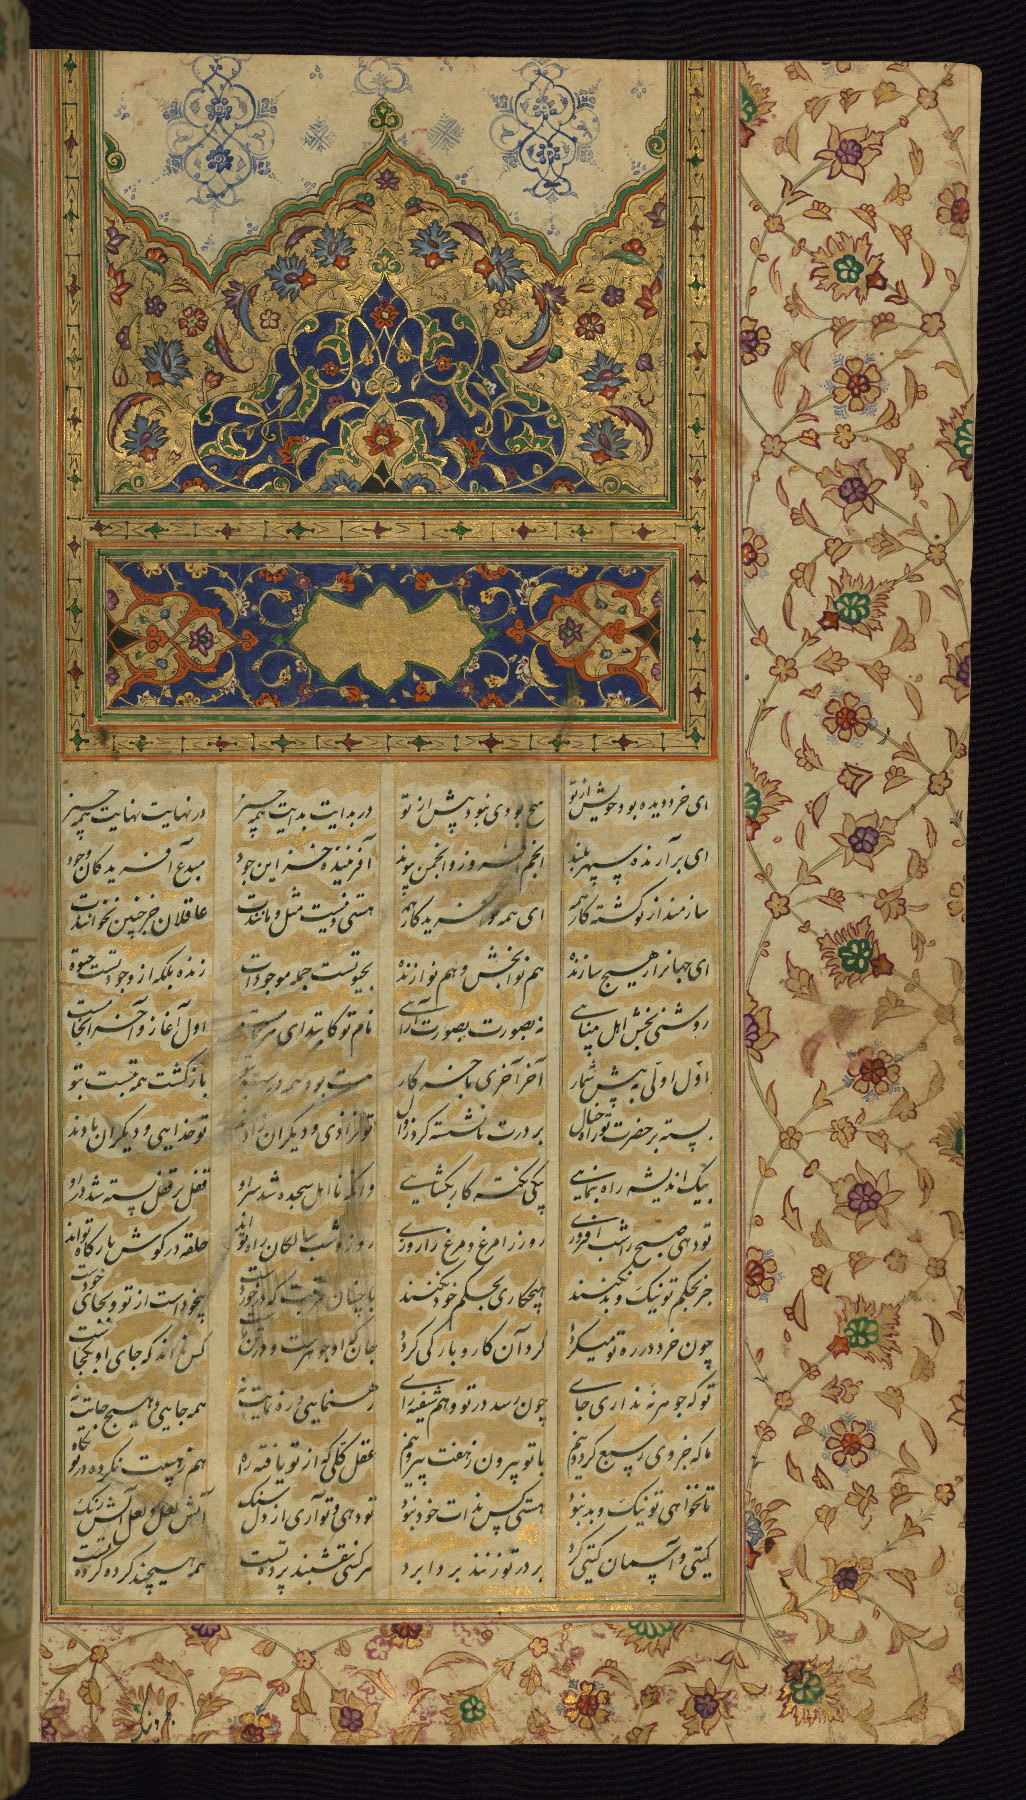 ای خرد دیده بود خویش از تو هیچ بودی نبود پیش از تو در بدایت بدایت همه چیز در نهایت نهایت همه چیز
ای برآرنده سپهر بلند انجم افروز و انجمن پیوند آفریننده خزینه جود مبدع آفریدگان وجود
سازمند از تو گشته کار همه ای همه و آفریدگار همه هستی و نیست مثل و مانندت عاقلان جز چنین نخوانندت
ای جهانرا ز هیچ سازنده هم نوابخش و هم نوازنده بحیوتست جمله موجودات زنده بلکه از وجود تست حیوة
روشنی بخش اهل بینایی نه بصورت بصورت آرایی نام تو کابتدای هر نامست اول آغاز و آخر انجامست
اول اولی به پیش شمار آخر آخری باخر کار هست بود همه درست بتو بازگشت همه بتست بتو
بسته بر حضرت تو راه خیال بر درت نانشسته گرد زوال تو نزادی و دیگران زادند تو خدایی و دیگران بادند
بیک اندیشه راه بنمایی بیکی نکته کار بگشایی وانکه نا اهل سجده شد سر او قفل بر قفل بسته شد در او
تو دهی صبح را شب افروزی روز را مرغ و مرغ را روزی روز و شب سالکان راه تواند حلقه در گوش بارگاه تواند
جز بحکم تو نیک و بد نکنند هیچکاری بحکم خود نکنند با چنان قربت که در خوردست بیخود است از تو و بجای خودست
چون خرد در ره تو میگردد گرد آن کار و بار کی گردد جان که او جوهرست و در تن ماست کس نداند که جای او بکجاست
تو که جوهر نه نداری جای چون رسد در تو وهم شیفته رای رهنمایی و رهنمایت نه همه جایی و هیچ جایت نه
ما که جزوی ز سبع گردونیم با تو بیرون ز هفت بیرونیم عقل کلی که از تو یافته راه هم ز هیبت نکرده در تو نگاه
تا نخواهی تو نیک و بد نبود هستی کس بذات خود نبود تو دهی و تو آری از دل سنگ آتش لعل و لعل آتش رنگ
گیتی و آسمان گیتی گرد بر در تو زنند بردابرد هر کسی نقشبند پرده تست همه هیچند کرده کرده تست